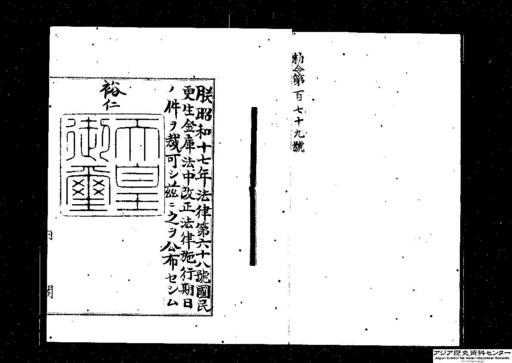 勅令第百七十九號
朕昭和十七年法律第六十八號國民
更生金庫法中改正法律施行期日
ノ件ヲ裁可シ茲ニ之ヲ公布セシム
裕仁
天皇
御璽
内閣
アジア歴史資料センター
Japan Center for Asian Historical Records